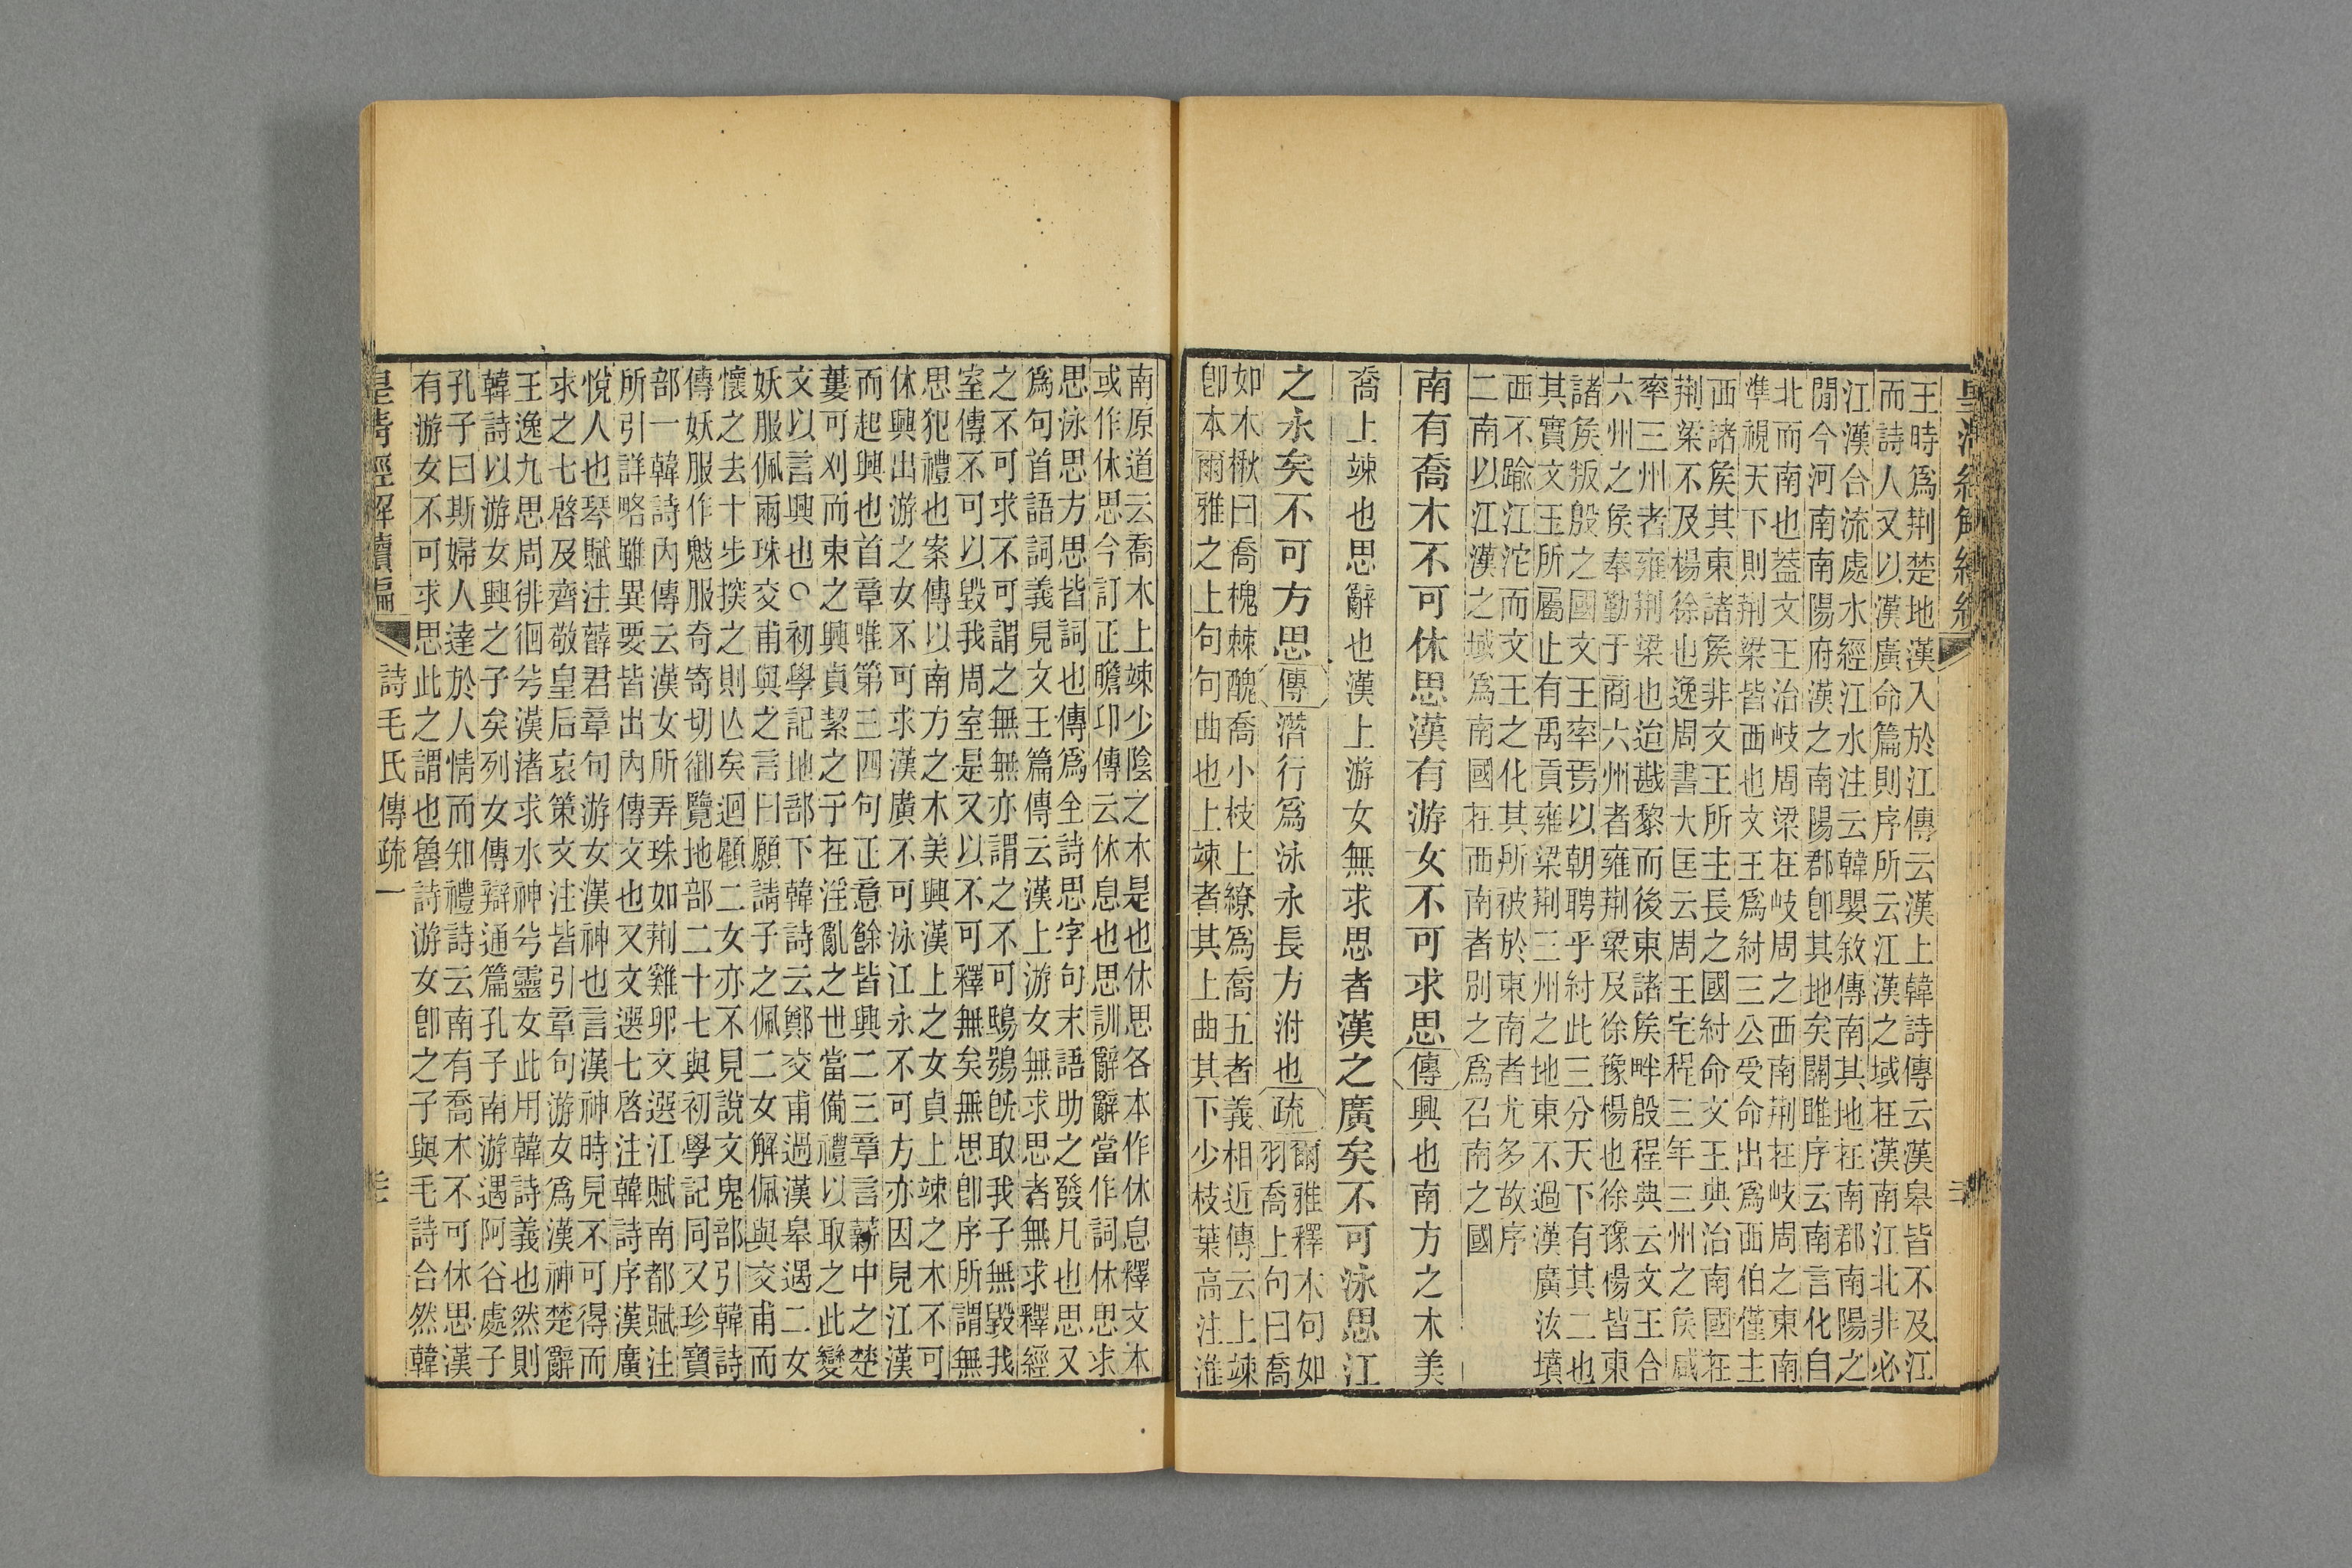 王時爲荆楚地漢入於江傳云漢上韓詩傳云漢皋皆不及江
而詩人又以漢廣命篇則序所云江漢之域在漢南江北非必
江漢合流處水經江水注云韓嬰敘傳南其地在南郡南陽之
閒今河南南陽府漢之南陽郡卽其地矣關雎序云南言化自
北而南也蓋文王治岐周梁在岐周之西南荆在岐周之東南
準視天下則荆梁皆西也文王爲紂三公受命出爲西伯僅主
西諸矦其東諸矦非文王所主長之國紂命文王典治南國在
荆梁不及楊徐也逸周書大匡云周王宅程三年三州之矦咸
率三州者雍荆梁也迨戡黎而後東諸矦畔殷程典云文王合
六州之矦奉勤于商六州者雍荆梁及徐豫楊也徐豫楊皆東
諸矦叛殷之國文王率焉以朝聘乎紂此三分天下有其二也
其實文王所屬止有禹貢雍梁荆三州之地東不過漢廣汝墳
西不踰江沱而文王之化其所被於東南者尤多故序
二南以江漢之域爲南國在西南者別之爲召南之國
南有喬木不可休思漢有游女不可求思傳興也南方之木美
喬上竦也思辭也漢上游女無求思者漢之廣矣不可泳思江
之永矣不可方思傳潛行爲泳永長方泭也疏
爾雅釋木句如
羽喬上句曰喬
如木楸曰喬槐棘醜喬小枝上繚爲喬五者義相近傳云上竦
卽本爾雅之上句句曲也上竦者其上曲其下少枝葉高注淮
南原道云喬木上竦少陰之木是也休思各本作休息釋文本
或作休思今訂正瞻卬傳云休息也思訓辭辭當作詞休思求
思泳思方思皆詞也傳爲全詩思字句末語助之發凡也思又
爲句首語詞義見文王篇傳云漢上游女無求思者無求釋經
之不可求不可謂之無無亦謂之不可鴟鴞旣取我子無毀我
室傳不可以毀我周室是又以不可釋無矣無思卽序所謂無
思犯禮也案傳以南方之木美興漢上之女貞上竦之木不可
休興出游之女不可求漢廣不可泳江永不可方亦因見江漢
而起興也首章唯第三四句正意餘皆興二三章言薪中之楚
蔞可刈而束之興貞絜之于在淫亂之世當備禮以取之此變
文以言興也○初學記地部下韓詩云鄭交甫過漢皋遇二女
妖服佩兩珠交甫與之言曰願請子之佩二女解佩與交甫而
懷之去十步探之則亾矣迴顧二女亦不見說文鬼部引韓詩
傳妖服作鬾服奇寄切御覽地部二十七與初學記同又珍寶
部一韓詩內傳云漢女所弄珠如荆雞卵文選江賦南都賦注
所引詳略雖異要皆出內傳文也又文選七啓注韓詩序漢廣
悅人也琴賦注薛君章句游女漢神也言漢神時見不可得而
求之七啓及齊敬皇后哀策文注皆引章句游女爲漢神楚辭
王逸九思周徘徊兮漢渚求水神兮靈女此用韓詩義也然則
韓詩以游女興之子矣列女傳辯通篇孔子南游遇阿谷處子
孔子曰斯婦人達於人情而知禮詩云南有喬木不可休思漢
有游女不可求思此之謂也魯詩游女卽之子與毛詩合然韓
皇清經解續編 詩毛氏傳疏一